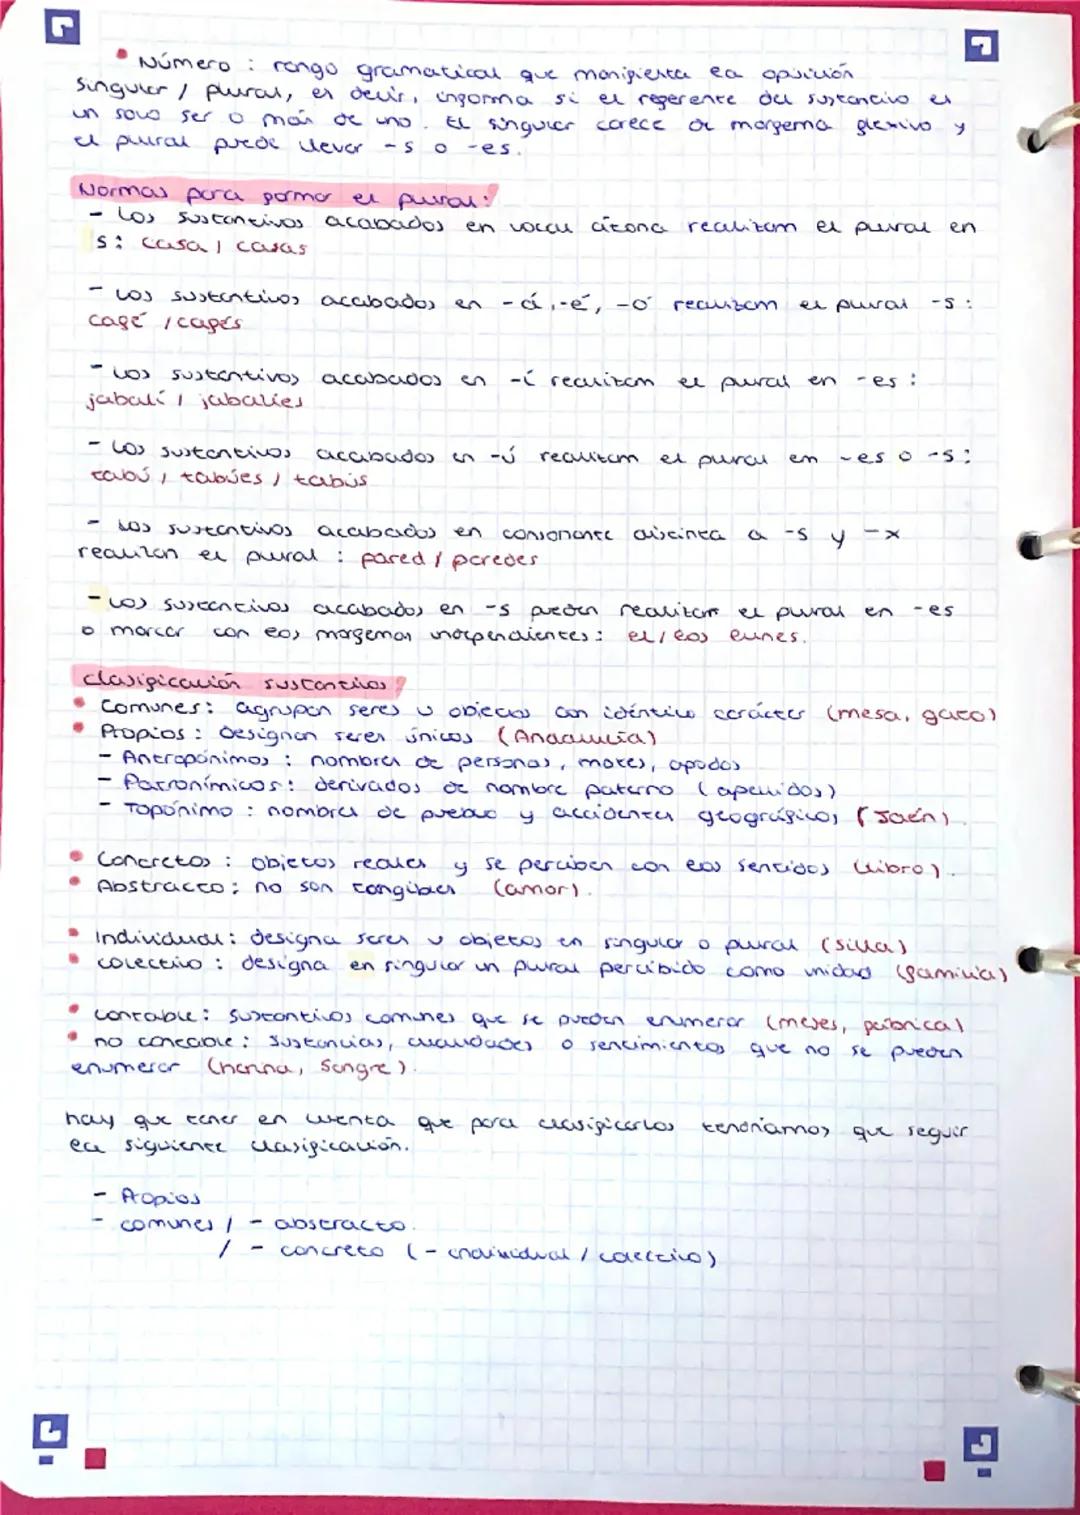 • Número : rango gramatical que manifiesta la oposición
singular / plural, es decir, informa si el referente del sustantivo es
un solo ser o más de uno. El singular carece de morfema flexivo y
el plural puede llevar -s o -es.
Normas para formar el plural:
- Los sustantivos acabados en vocal átona realizam el plural en
s: casa / casas
- Los sustantivos acabados en -á, -é, -ó realizam el plural -s:
café / cafés
- Los sustantivos acabados en -í realizam el plural en -es:
jabalí / jabalíes
- Los sustantivos acabados en -ú realizam el plural em -es o -s:
tabú / tabúes / tabús
- Los sustantivos acabados en consonante distinta a -s y -x
realizan el plural : pared / paredes
- Los sustantivos acabados en -s pueden realizar el plural en -es
o marcar con los morfemas independientes: el / los lunes.
Clasificación sustantivos:
• Comunes: agrupan seres u objectos con idéntico carácter (mesa, gato)
• Propios: designan seres únicos (Andalucía)
- Antropónimos : nombres de personas, motes, apodos
- Patronímicos: derivados de nombre paterno (apellidos)
- Topónimo : nombres de pueblo y accidentes geográficos (Jaén).
• Concretos : objetos reales y se perciben con los sentidos (libro).
• Abstracto: no son tangibles (amor).
• Individual: designa seres u objetos en singular o plural (silla)
• colectivo : designa en singular un plural percibido como unidad (familia)
• contable: Sustantivos comunes que se pueden enumerar (meses, fábrica)
• no contable: Sustancias, cualidades o sentimientos que no se pueden
enumerar (harina, Sangre).
hay que tener en cuenta que para clasificarlos tendríamos que seguir
la siguiente clasificación.
- Propios
- comunes / - abstracto.
/ - concreto (- individual / colectivo)